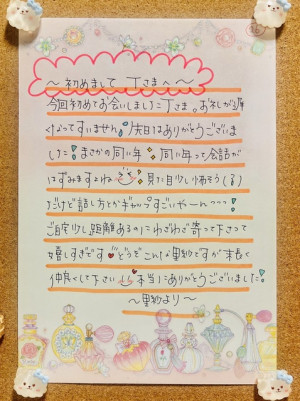 〜初めまして Tさまへ〜
今回初めてお会いしましたTさま。お礼が遅
くなってすいません!先日はありがとうございま
した!まさかの同い年 同い年って会話が
はずみますよね 見た目少し怖そう(笑)
だけど話し方とかギャップすごいやーんっっっ!
ご自宅少し距離あるのにわざわざ寄って下さって
嬉しすぎです♥どうぞこんな里紗ですが末長く
仲良くして下さい 本当にありがとうございました!
〜里紗より〜